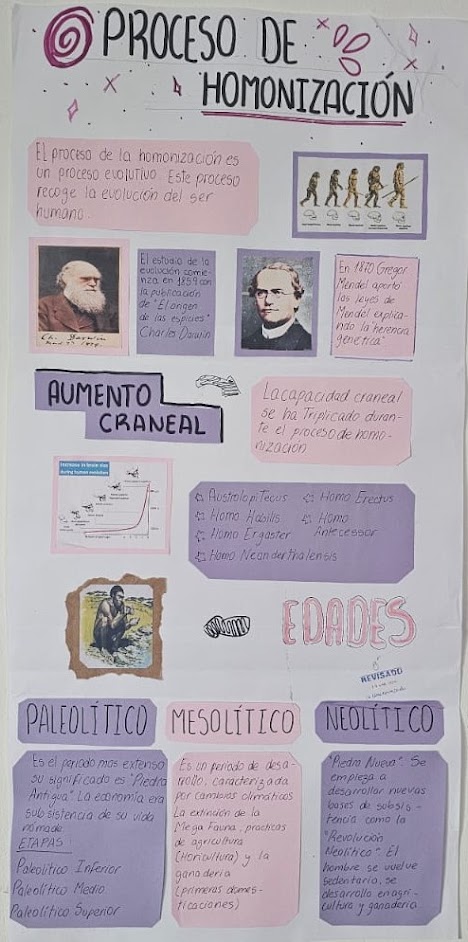 PROCESO DE
HOMONIZACIÓN
El proceso de la homonización es
un proceso evolutivo. Este proceso
recoge la evolución del ser
humano.
El estudio de la
evolución comie-
nza en 1859 con
la publicación
de "El origen
de las especies"
Charles Darwin
Ch. Darwin
En 1870 Gregor
Mendel aportó
las leyes de
Mendel explica-
ndo la herencia
genética"
AUMENTO
CRANEAL
La capacidad craneal
se ha Triplicado duran-
te el proceso de homo-
nización
Increase in brain size
during human evolution
Australopitecus
Homo Habilis
Homo Ergaster
Homo Neanderthalensis
Homo Erectus
Homo
Antecessor
EDADES
REVISADO
PALEOLÍTICO
Es el periodo mas extenso
su significado es "Piedra
Antigua". La economía era
subsistencia de su vida
nómada.
ETAPAS:
Paleolítico Inferior
Paleolítico Medio
Paleolítico Superior
MESOLÍTICO
Es un periodo de desa-
rrollo, caracterizada
por cambios climáticos
La extinción de la
Mega Fauna, practicas
de agricultura
(Horicultura) y la
ganadería
(primeras domes-
ticaciones)
NEOLÍTICO
"Piedra Nueva". Se
empieza a
desarrollar nuevas
bases de subsis-
tencia como la
"Revolución
Neolítica". El
hombre se vuelve
sedentario, se
desarrollo en agri-
cultura y ganadería